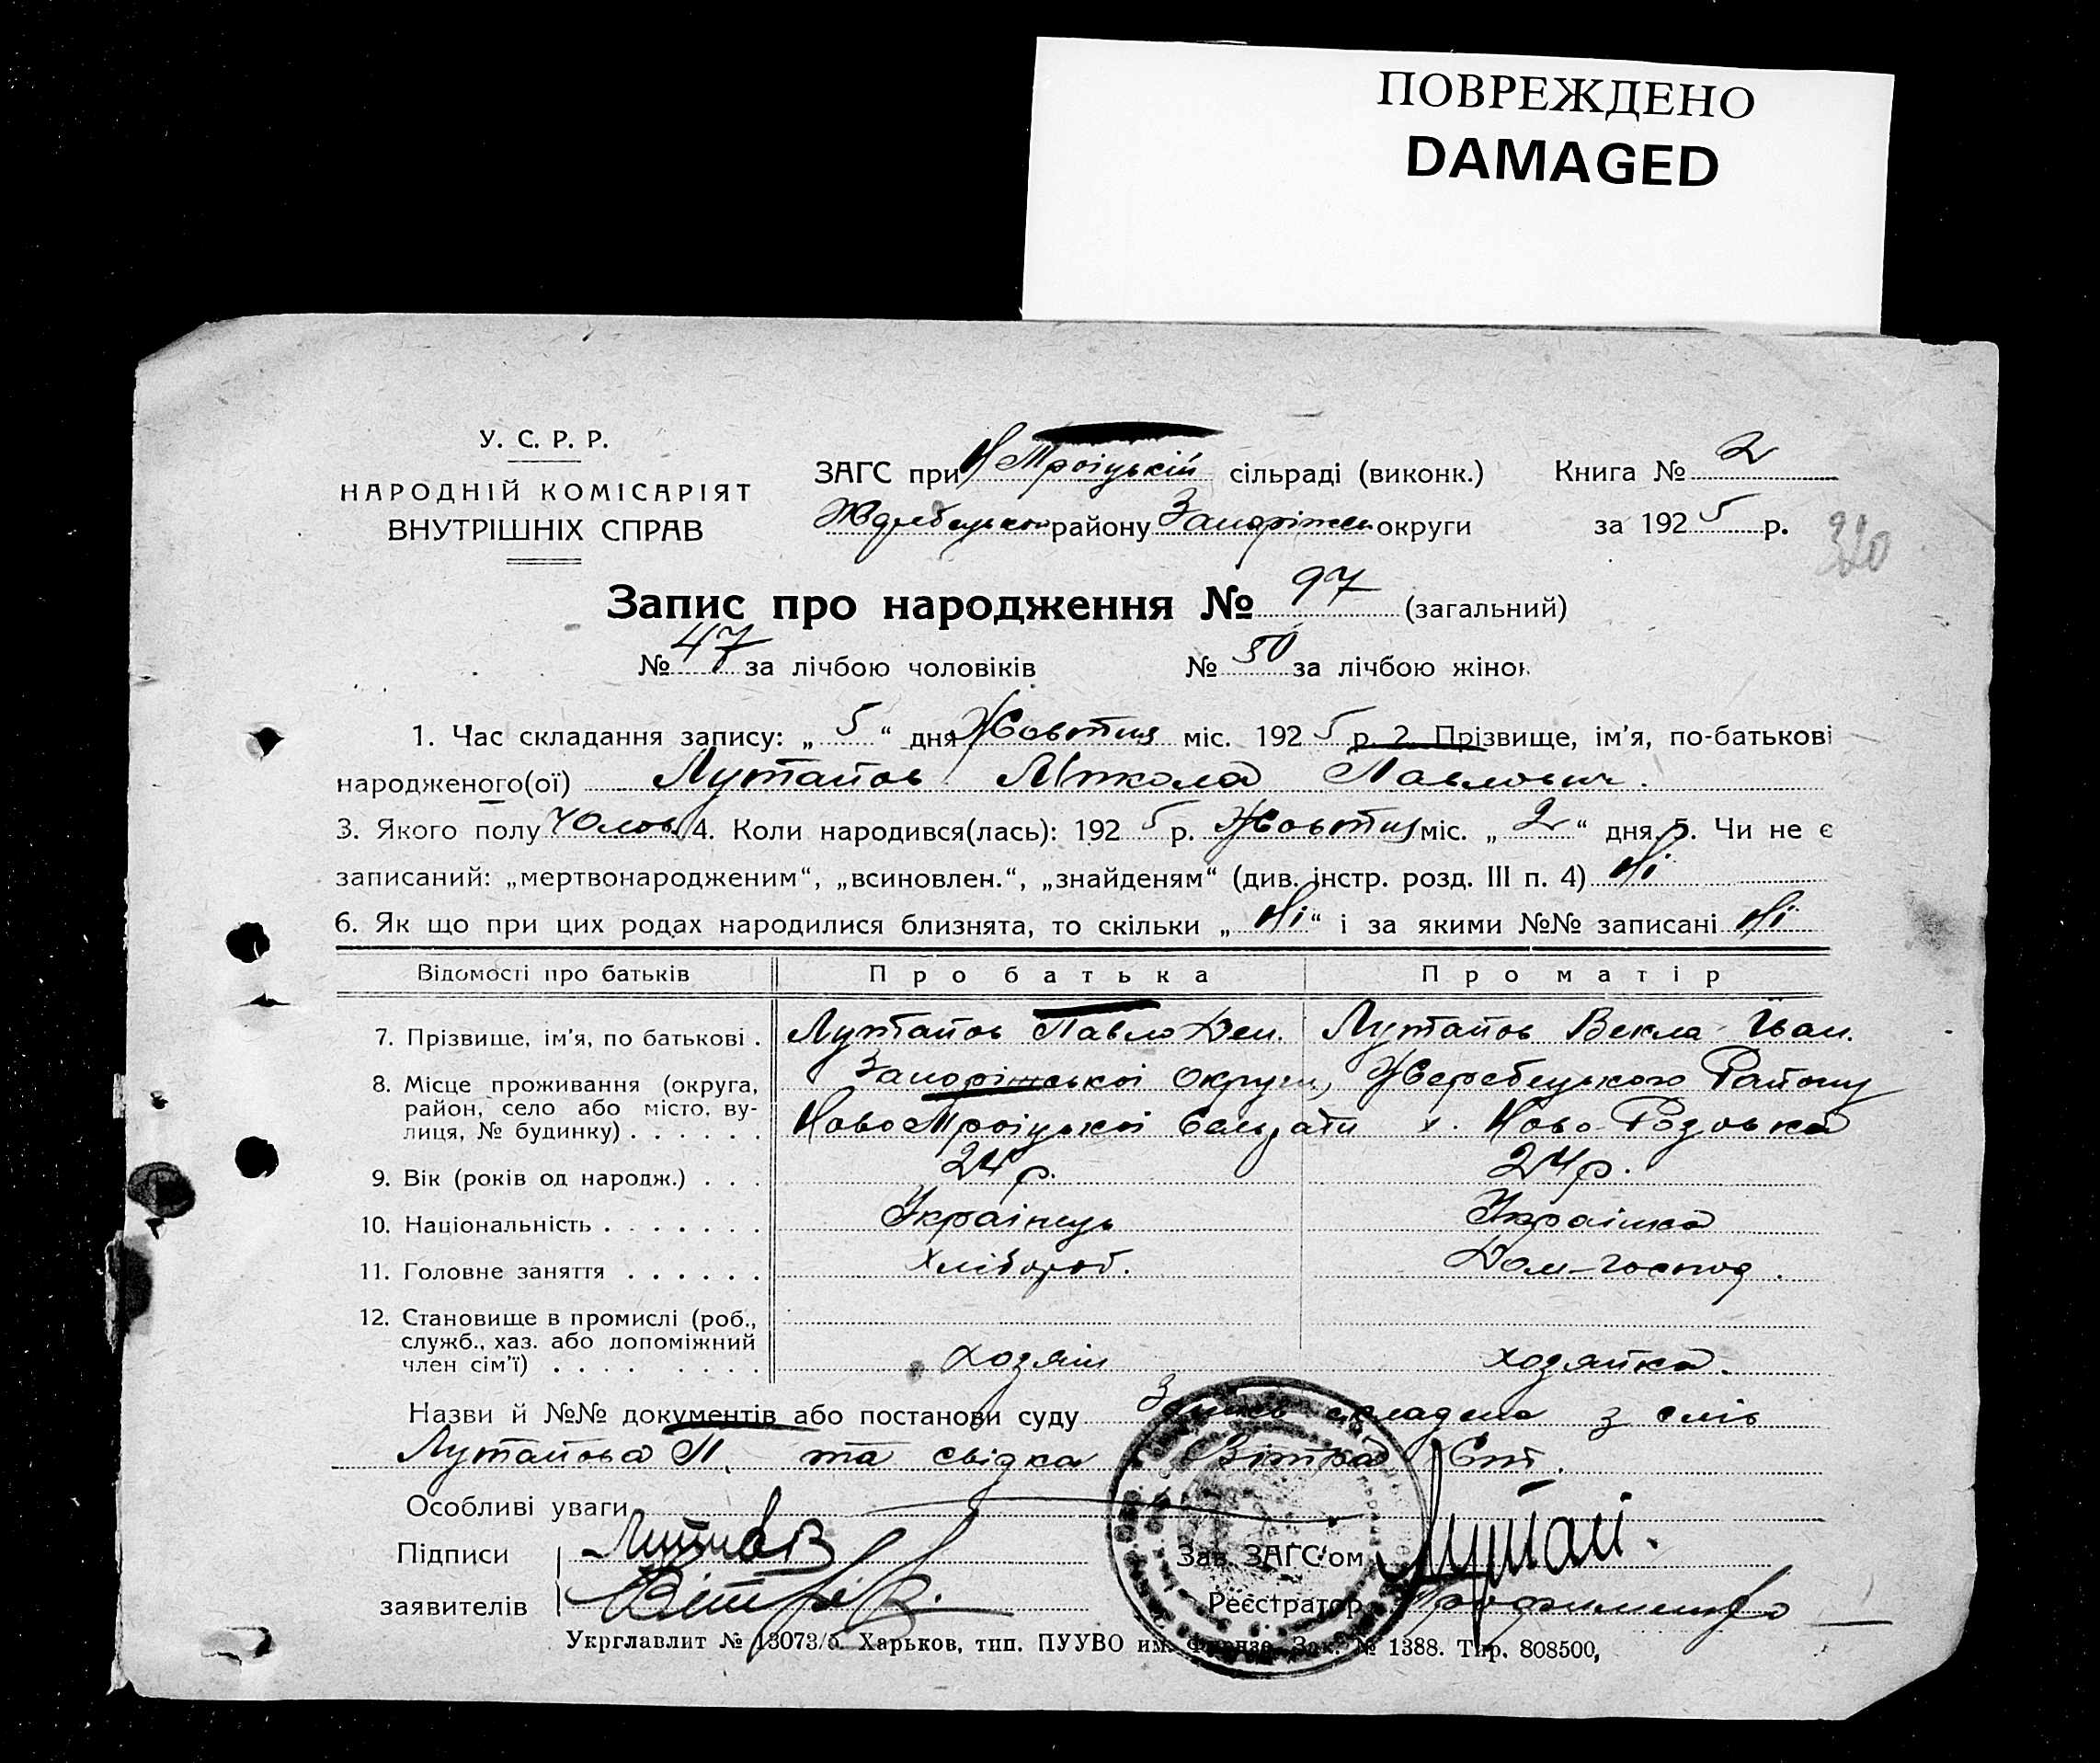 ПОВРЕЖДЕНО
DAMAGED
У. С. Р. Р.
НАРОДНІЙ КОМІСАРІЯТ
ВНУТРІШНІХ СПРАВ
ЗАГС при Н Троіцькій сільраді (виконк.) Книга № 2
району Запоріжск округи за 1925 р.
320
Запис про народження № 97 (загальний)
№ 47 за лічбою чоловіків № 50 за лічбою жінок
1. Час складання запису: „ 5 “ дня Жовтня міс. 1925 р. 2. Прізвище, ім'я, по-батькові
народженого(ої) Лутаїов Мікола Павлович.
3. Якого полу Чолов. 4. Коли народився(лась): 1925 р. Жовтня міс. „ 2 “ дня. 5. Чи не є
записаний: „мертвонародженим“, „всиновлен.“, „знайденям“ (див. інстр. розд. III п. 4) Ні
6. Як що при цих родах народилися близнята, то скільки „ Ні “ і за якими №№ записані Ні
Відомості про батьків Про батька Про матір
7. Прізвище, ім'я, по батькові . Лутаїов Павло Дем. Лутаїов Векла Іван.
8. Місце проживання (округа, Запоріжськоі Округи, Жеребецького Району
район, село або місто, ву-
лиця, № будинку) . . . . . . Ново Троіцькоі х. Ново-Розовка
9. Вік (років од народж.) . . . 24 р. 24 р.
10. Національність . . . . . . . Українець Украінка
11. Головне заняття . . . . . . Хлібороб. Дом-господ.
12. Становище в промислі (роб.,
служб., хаз. або допоміжний
член сім'ї) . . . . . . . . хозяін хозяйка.
Назви й №№ документів або постанови суду Запис складено з слів
Лутаїова П. та свідка Вітка Єпт.
Особливі уваги
Підписи Зав. ЗАГС'ом
заявителів Реєстратор Трофименко
Укрглавлит № 13073/5. Харьков, тип. ПУУВО им. Фрунзе. Зак. № 1388. Тир. 808500,